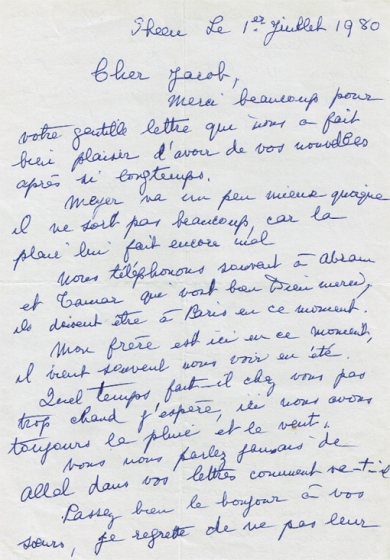 Sheen Le 1er Juillet 1980
Cher Jacob,
Merci beaucoup pour
votre gentille lettre qui nous a fait
bien plaisir d'avoir de vos nouvelles
après si longtemps.
Meyer va un peu mieux quoique
il ne sort pas beaucoup, car la
plaie lui fait encore mal
Nous téléphonons souvent à Abram
et Tamar qui vont bien Dieu merci,
ils doivent être à Paris en ce moment.
Mon frère est ici en ce moment,
il vient souvent nous voir en été.
Quel temps fait-il chez vous pas
trop chaud j'espère, ici nous avons
toujours la pluie et le vent.
vous nous parlez jamais de
Allal dans vos lettres comment va-t-il
Passez bien le bonjour à vos
sœurs, je regrette de ne pas leur